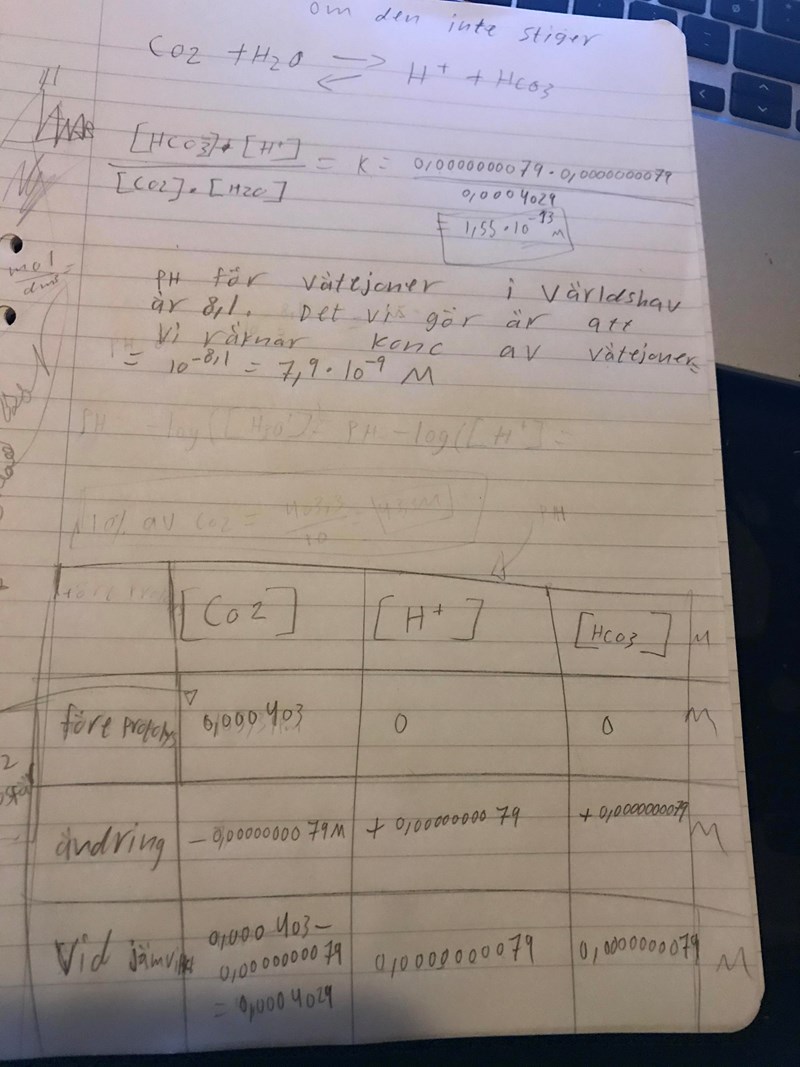 om den inte stiger
CO2 + H2O ⇌ H+ + HCO3
[HCO3]•[H+] / [CO2]•[H2O] = K = 0,0000000079 • 0,0000000079 / 0,0004029
= 1,55•10^-13 M
mol/dm3
PH för vätejoner i världshav
är 8,1. Det vi gör är att
vi räknar konc av vätejoner=
= 10^-8,1 = 7,9•10^-9 M
PH -log([H3O+]= PH -log([H+]=
10% av CO2 = 403,3 / 10
PH
[CO2] [H+] [HCO3] M
före protolys 0,000403 0 0 M
ändring -0,0000000079M + 0,0000000079 + 0,0000000079 M
Vid jämvikt 0,000403- 0,0000000079 = 0,0004029 0,0000000079 0,0000000079 M